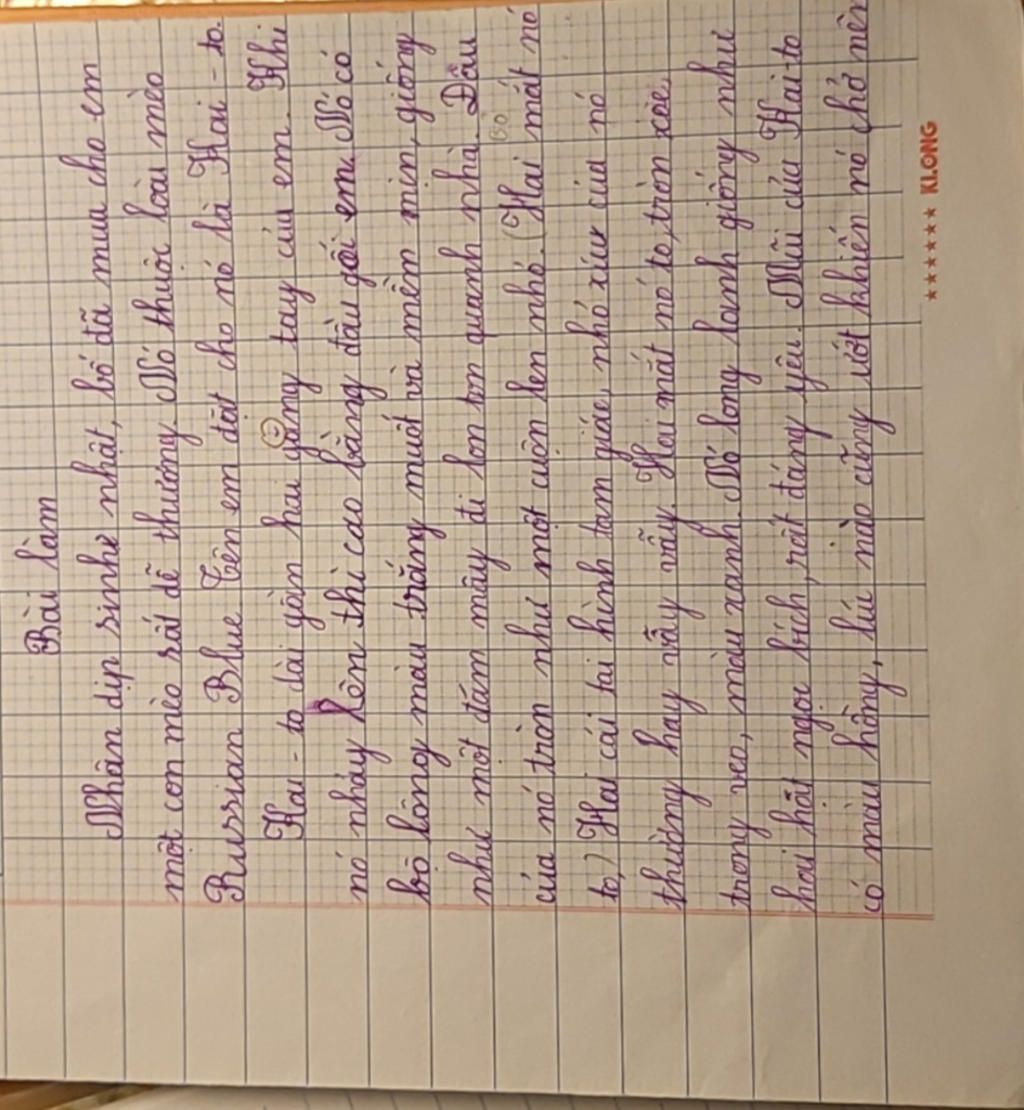 Bài làm
Nhân dịp sinh nhật, bố đã mua cho em
một con mèo rất dễ thương. Nó thuộc loài mèo
Russian Blue. Tên em đặt cho nó là Hai-to.
Hai-to dài gồm hai gông tay của em. Khi
nó nháy lên thì cao bằng đầu gối em. Nó có
bộ lông màu trắng muốt và mềm mịn, giống
như một đám mây đi lon ton quanh nhà. Đầu
của nó tròn như một cuộn len nhỏ. (Hai mắt nó
to) Hai cái tai hình tam giác, nhỏ xíu của nó
thường hay vẫy vẫy. Hai mắt nó to, tròn xoe
trong veo, màu xanh. Nó long lanh giống như
hai hạt ngọc bích, rất đáng yêu. Mũi của Hai-to
có màu hồng, lúc nào cũng ướt khiến nó chở nên
KLONG